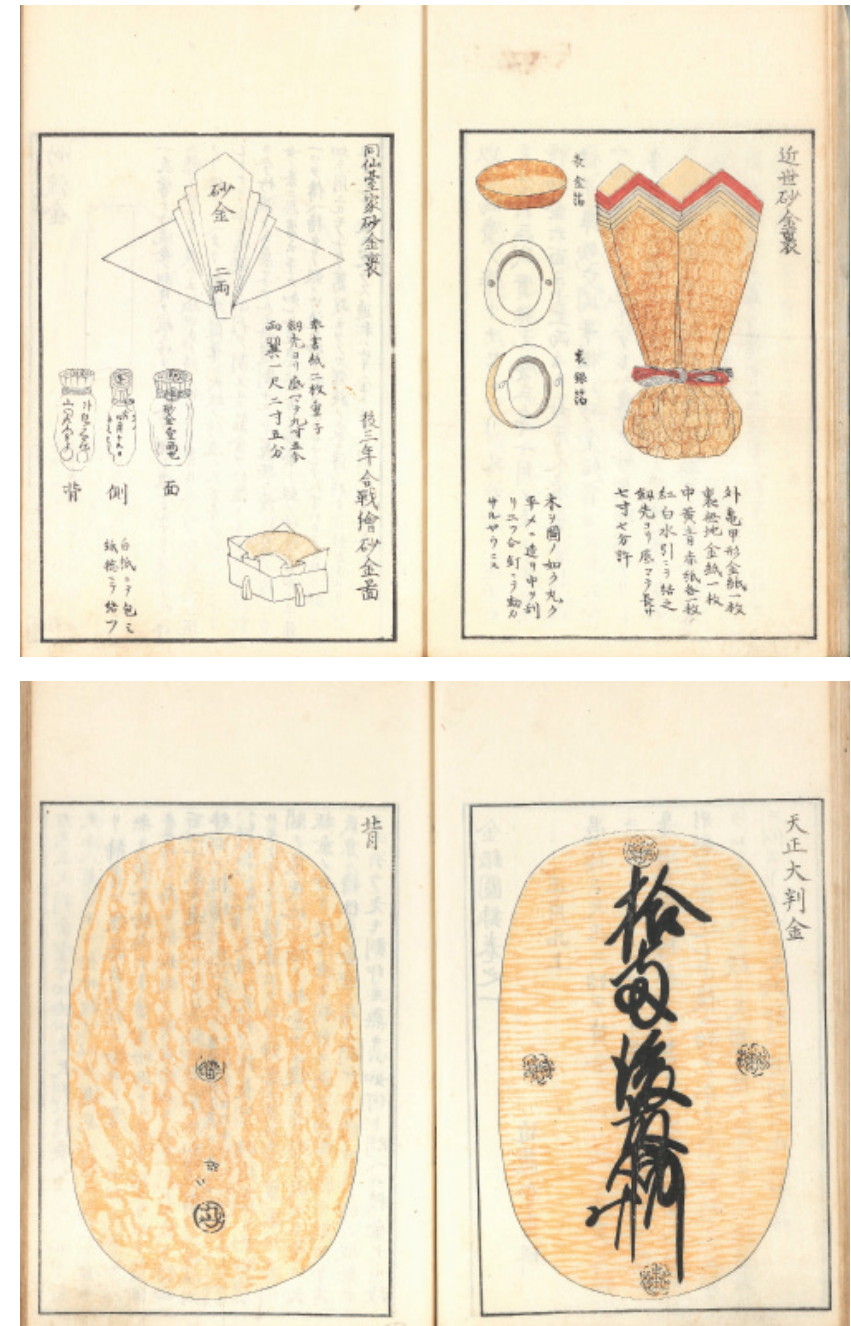 近世砂金裹
外亀甲形金紙一枚
裏無地金紙一枚
中黄青赤紙各一枚
紅白水引ニテ結之
剱先ヨリ底マテ長サ
七寸七分許
表金箔
裏銀箔
木ヲ圖ノ如ク丸ク
平メニ造リ中ヲ刳
リ二ツ合釘ニテ動カ
サルヤウニス
同仙臺家砂金裹
砂金
二両
奉書紙二枚重子
剱先ヨリ底マテ九寸五分
両翼一尺二寸五分
後三年合戦繪砂金圖
面
側
背
白紙ニテ包ミ
紙捻ニテ結フ
天正大判金
拾両後藤
背